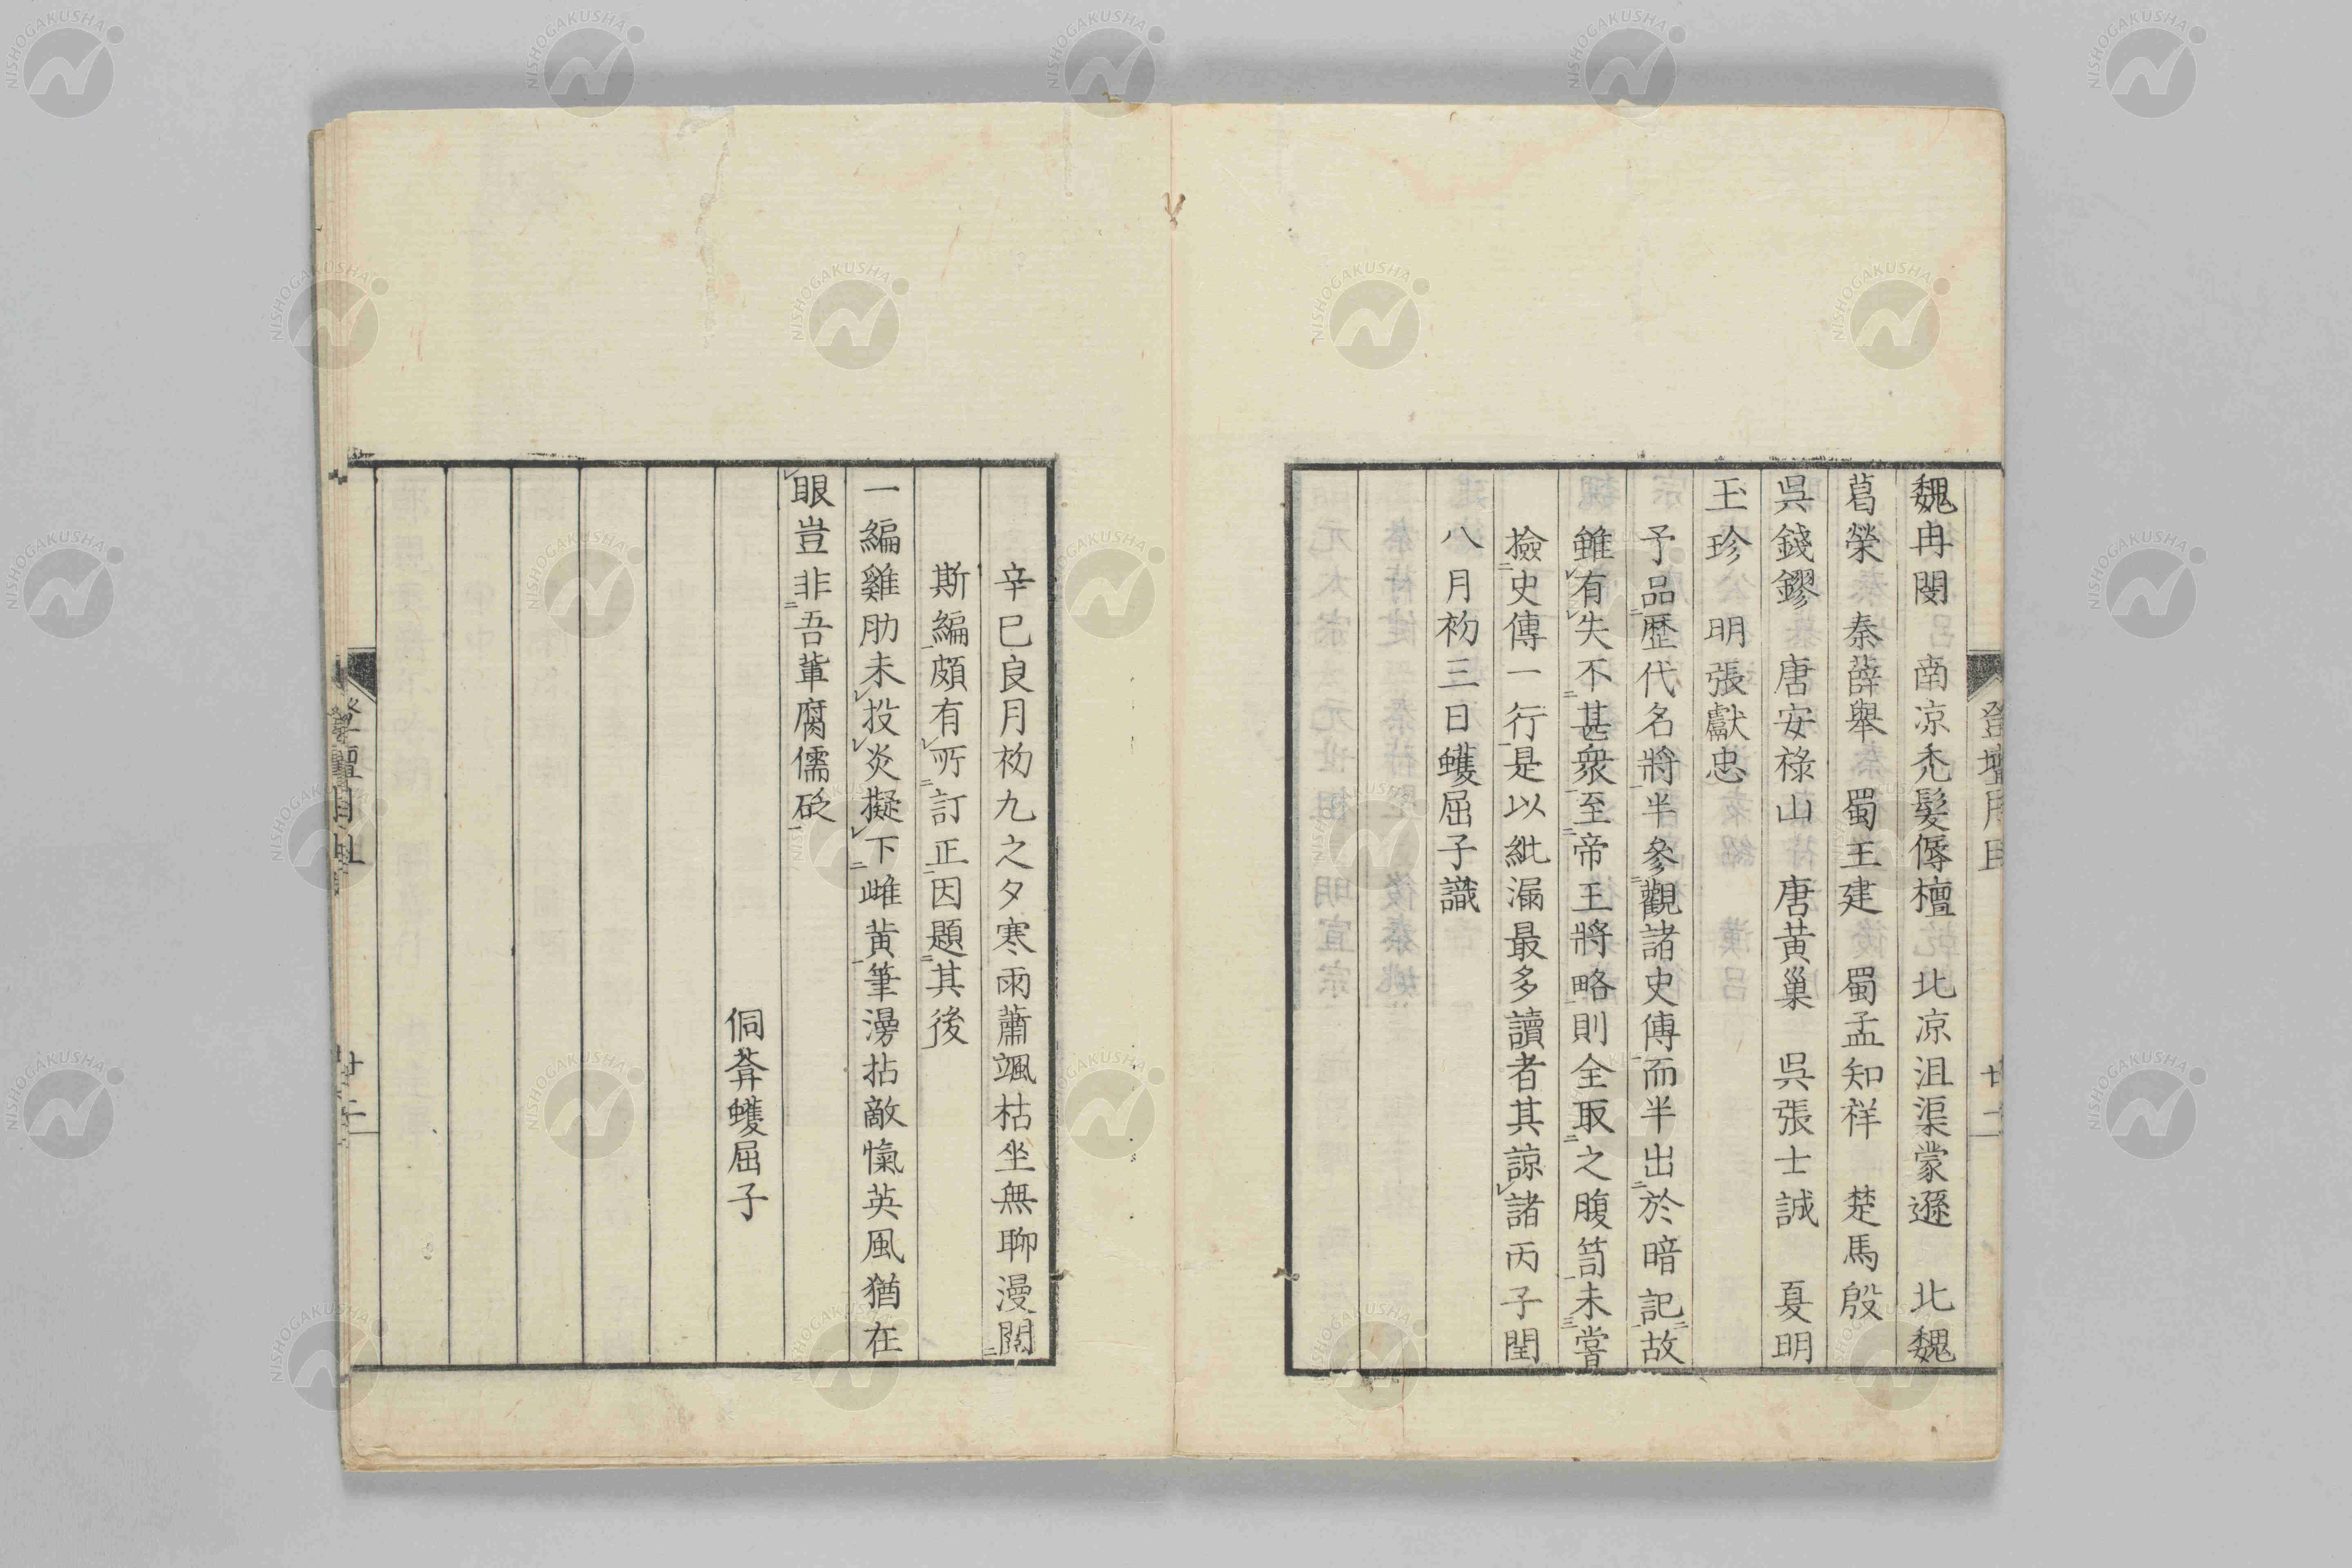 魏冉閔　南凉禿髮傉檀　北凉沮渠蒙遜　北魏
葛榮　秦薛舉　蜀王建　蜀孟知祥　楚馬殷
呉錢鏐　唐安祿山　唐黃巢　呉張士誠　夏明
玉珍　明張獻忠
予品歷代名將半參觀諸史傳而半出於暗記故
雖有失不甚衆至帝王將略則全取之腹笥未嘗
撿史傳一行是以紕漏最多讀者其諒諸丙子閏
八月初三日蠖屈子識
辛巳良月初九之夕寒雨蕭颯枯坐無聊漫閱
斯編頗有所訂正因題其後
一編雞肋未投炎擬下雌黃筆漫拈敵愾英風猶在
眼豈非吾輩腐儒砭
侗菴蠖屈子
NISHOGAKUSHA